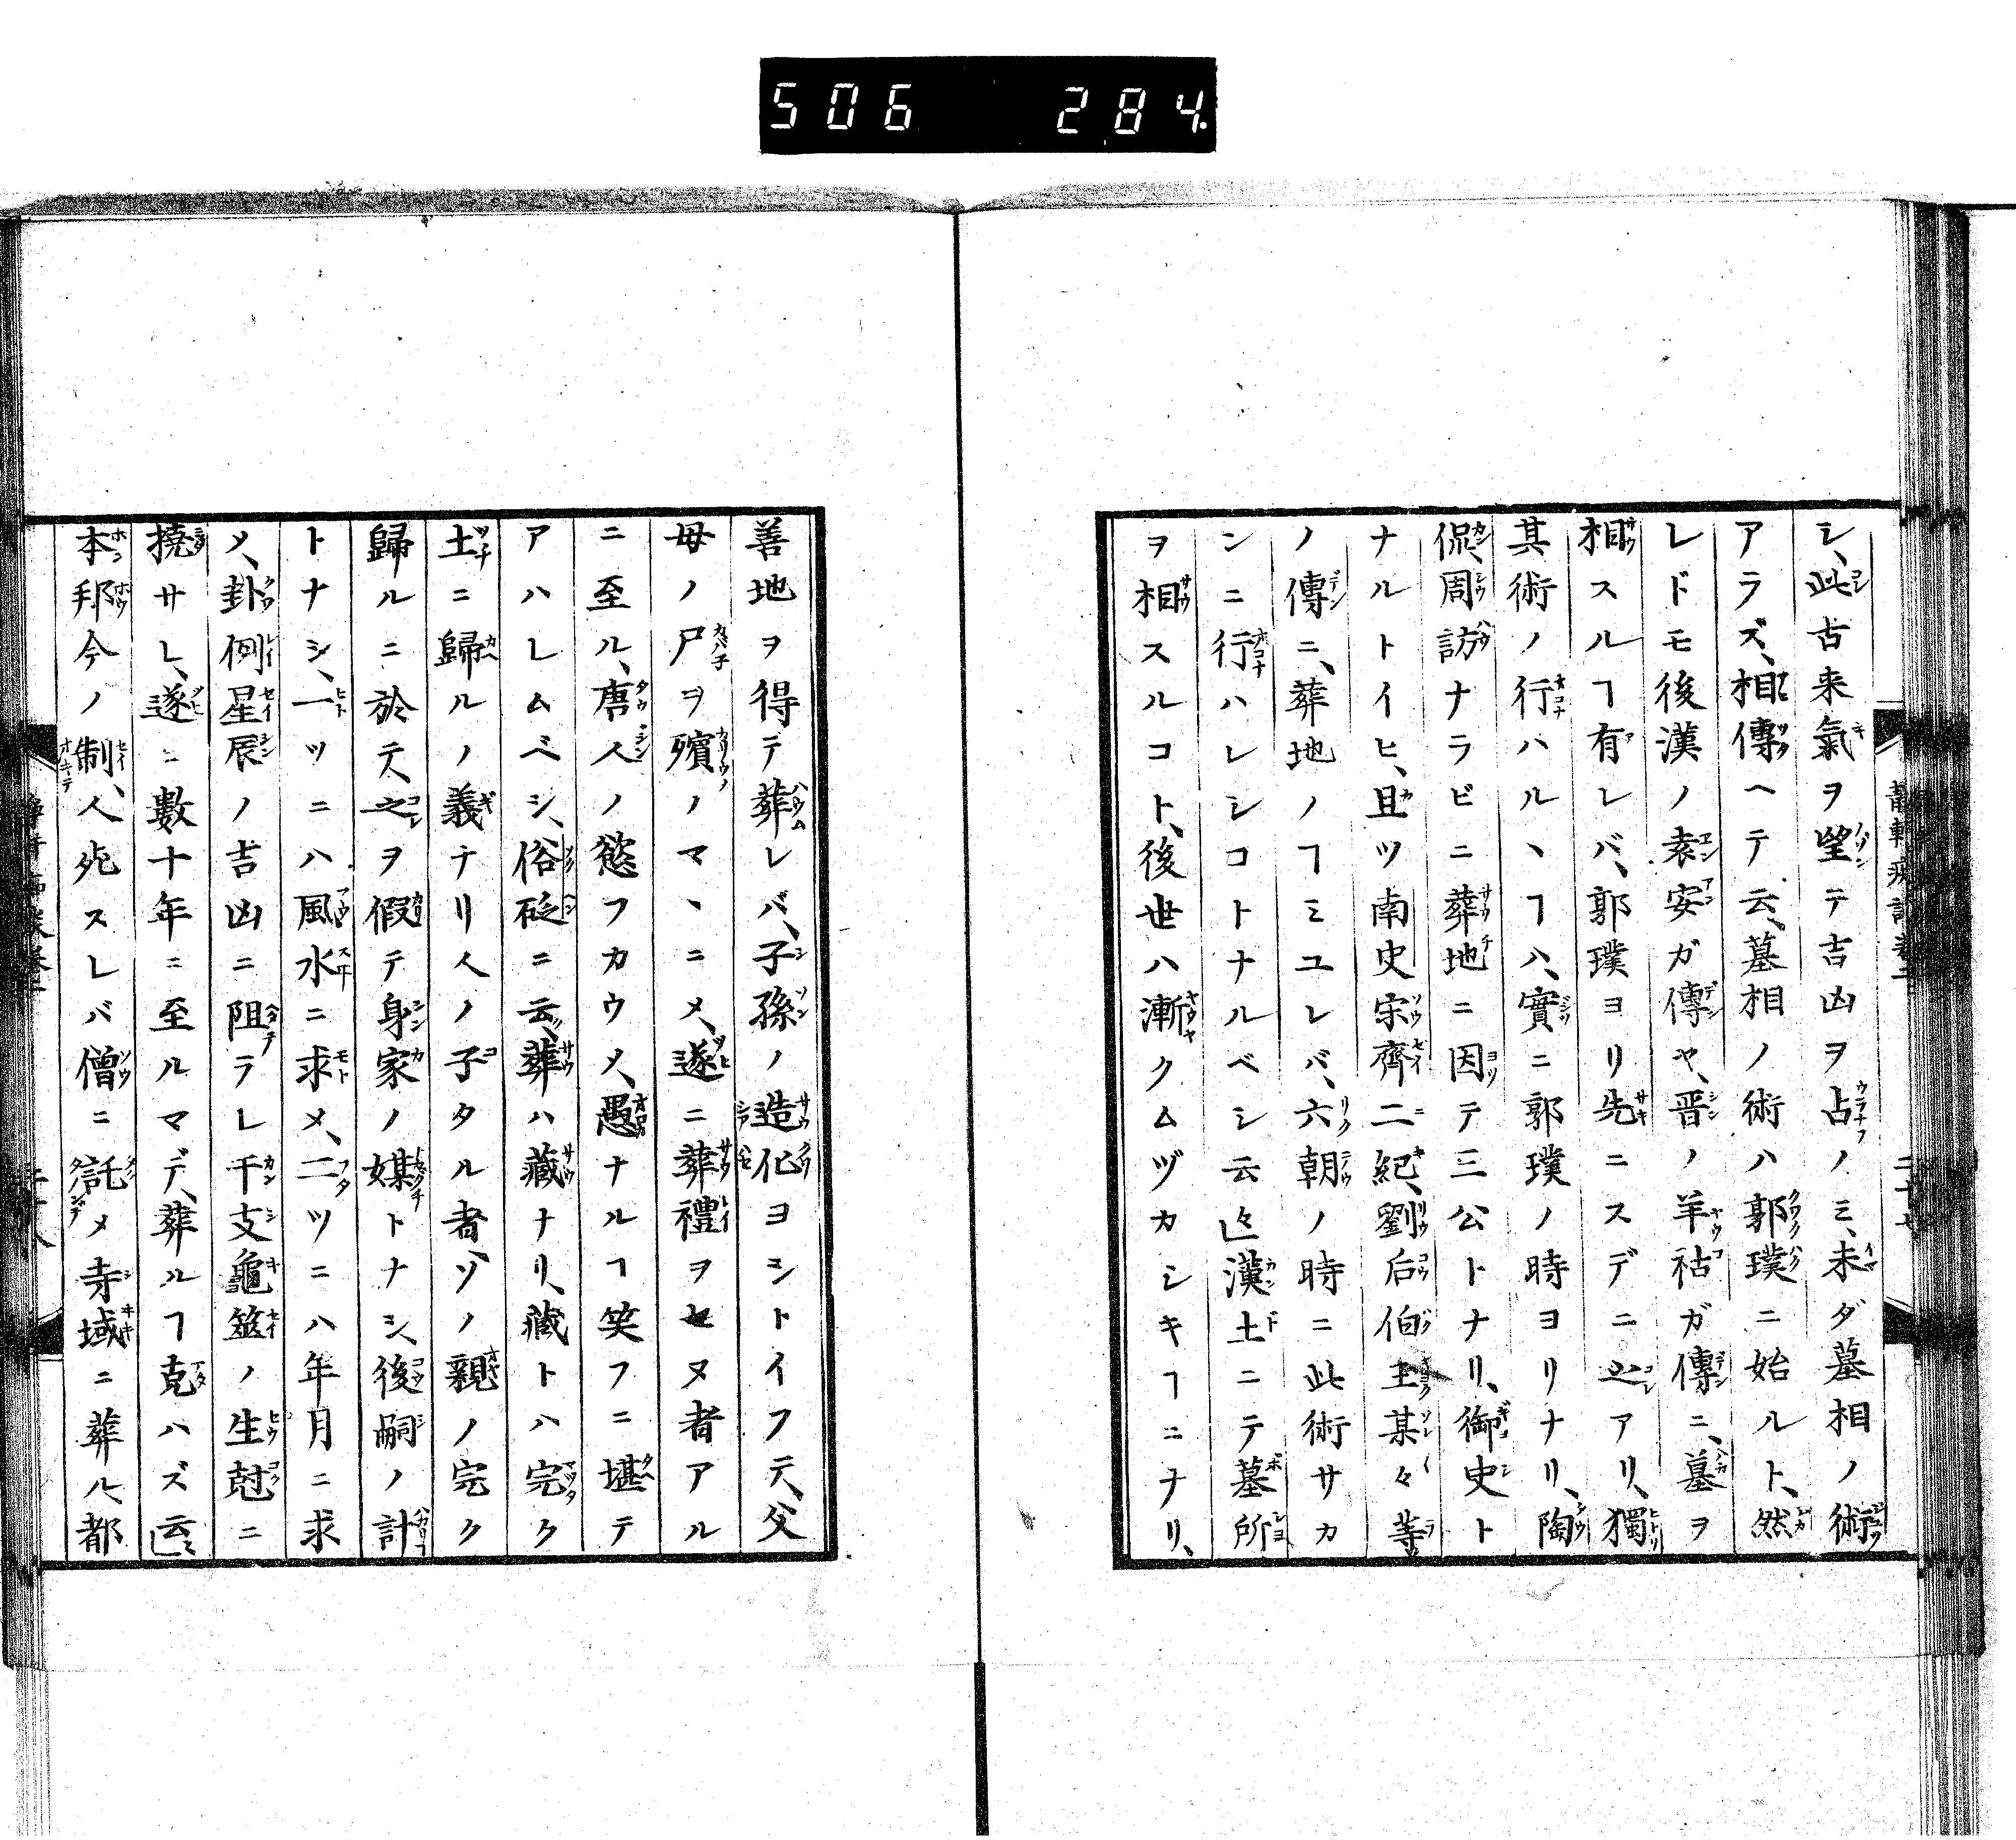 506 284
シ、此古来氣ヲ望テ吉凶ヲ占ノミ、未ダ墓相ノ術
アラズ、相傳ヘテ云、墓相ノ術ハ郭璞ニ始ルト、然
レドモ後漢ノ袁安ガ傳ヤ、晋ノ羊祜ガ傳ニ、墓ヲ
相スルヿ有レバ、郭璞ヨリ先ニスデニ之アリ、獨
其術ノ行ハルヽヿハ、實ニ郭璞ノ時ヨリナリ、陶
侃、周訪ナラビニ葬地ニ因テ三公トナリ、御史ト
ナルトイヒ、且ツ南史宋齊二紀、劉后伯玉某々等
ノ傳ニ、葬地ノヿミユレバ、六朝ノ時ニ此術サカ
ンニ行ハレシコトナルベシ云々」漢土ニテ墓所
ヲ相スルコト、後世ハ漸クムヅカシキヿニナリ、
善地ヲ得テ葬レバ、子孫ノ造化ヨシトイフテ、父
母ノ尸ヲ殯ノマヽニメ、遂ニ葬禮ヲセヌ者アル
ニ至ル、唐人ノ慾フカウメ、愚ナルヿ笑フニ堪テ
アハレムベシ、俗砭ニ云、葬ハ藏ナリ、藏トハ完ク
土ニ歸ルノ義ナリ人ノ子タル者ソノ親ノ完ク
歸ルニ於テ、之ヲ假テ身家ノ媒トナシ、後嗣ノ計
トナシ、一ツニハ風水ニ求メ、二ツニハ年月ニ求
メ、卦例星辰ノ吉凶ニ阻ラレ干支龜筮ノ生尅ニ
撓サレ、遂ニ數十年ニ至ルマデ、葬ルヿ克ハズ云々」
本邦今ノ制、人死スレバ僧ニ託メ寺域ニ葬ル、都